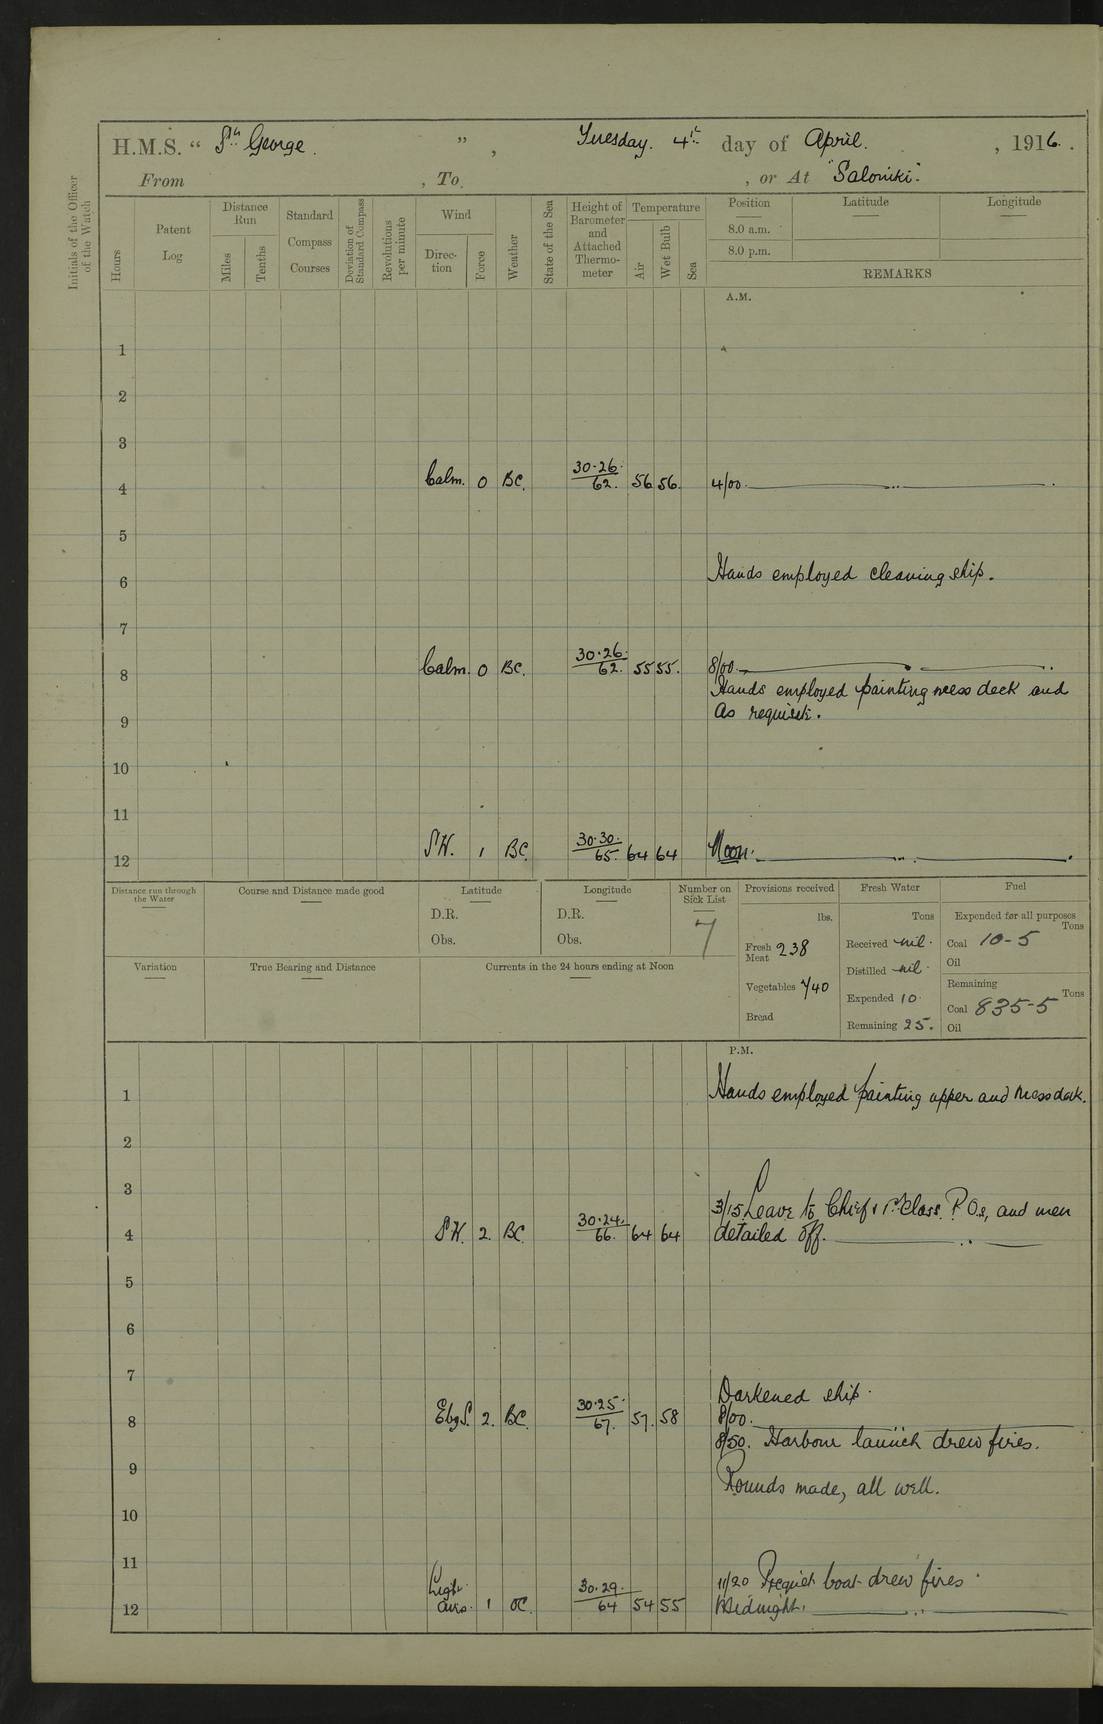 H.M.S. " St George. ", Tuesday. 4th day of April. , 1916.
From , To , or At "Saloniki".
Initials of the Officer of the Watch
Hours
Patent Log
Distance Run
Miles
Tenths
Standard Compass Courses
Deviation of Standard Compass
Revolutions per minute
Wind
Direction
Force
Weather
State of the Sea
Height of Barometer and Attached Thermometer
Temperature
Air
Wet Bulb
Sea
Position
Latitude
Longitude
8.0 a.m.
8.0 p.m.
REMARKS
A.M.
1
2
3
4 Calm. 0 BC. 30.26. 62. 56 56. 4/00.
5
6 Hands employed cleaning ship.
7
8 Calm. 0 BC. 30.26. 62. 55 55. 8/00.
Hands employed painting mess deck and
9 as requisite.
10
11
12 SW. 1 BC. 30.30. 65. 64 64 Noon.
Distance run through the Water
Course and Distance made good
Latitude
D.R.
Obs.
Longitude
D.R.
Obs.
Number on Sick List
7
Provisions received
lbs.
Fresh Meat 238
Vegetables 740
Bread
Fresh Water
Tons
Received nil.
Distilled nil.
Expended 10
Remaining 25.
Fuel
Expended for all purposes
Tons
Coal 10-5
Oil
Remaining
Tons
Coal 835-5
Oil
Variation
True Bearing and Distance
Currents in the 24 hours ending at Noon
P.M.
1 Hands employed painting upper and mess deck.
2
3
3/15 Leave to Chief & 1st Class. P.Os, and men
4 SW. 2. BC. 30.24. 66. 64 64 detailed off.
5
6
7
Darkened ship.
8 EbyS. 2. BC. 30.25. 67. 57. 58 8/00.
8/50. Harbour launch drew fires.
9
Rounds made, all well.
10
11
11/20 Picquet boat drew fires
12 Light airs. 1 OC. 30.29. 64 54 55 Midnight.